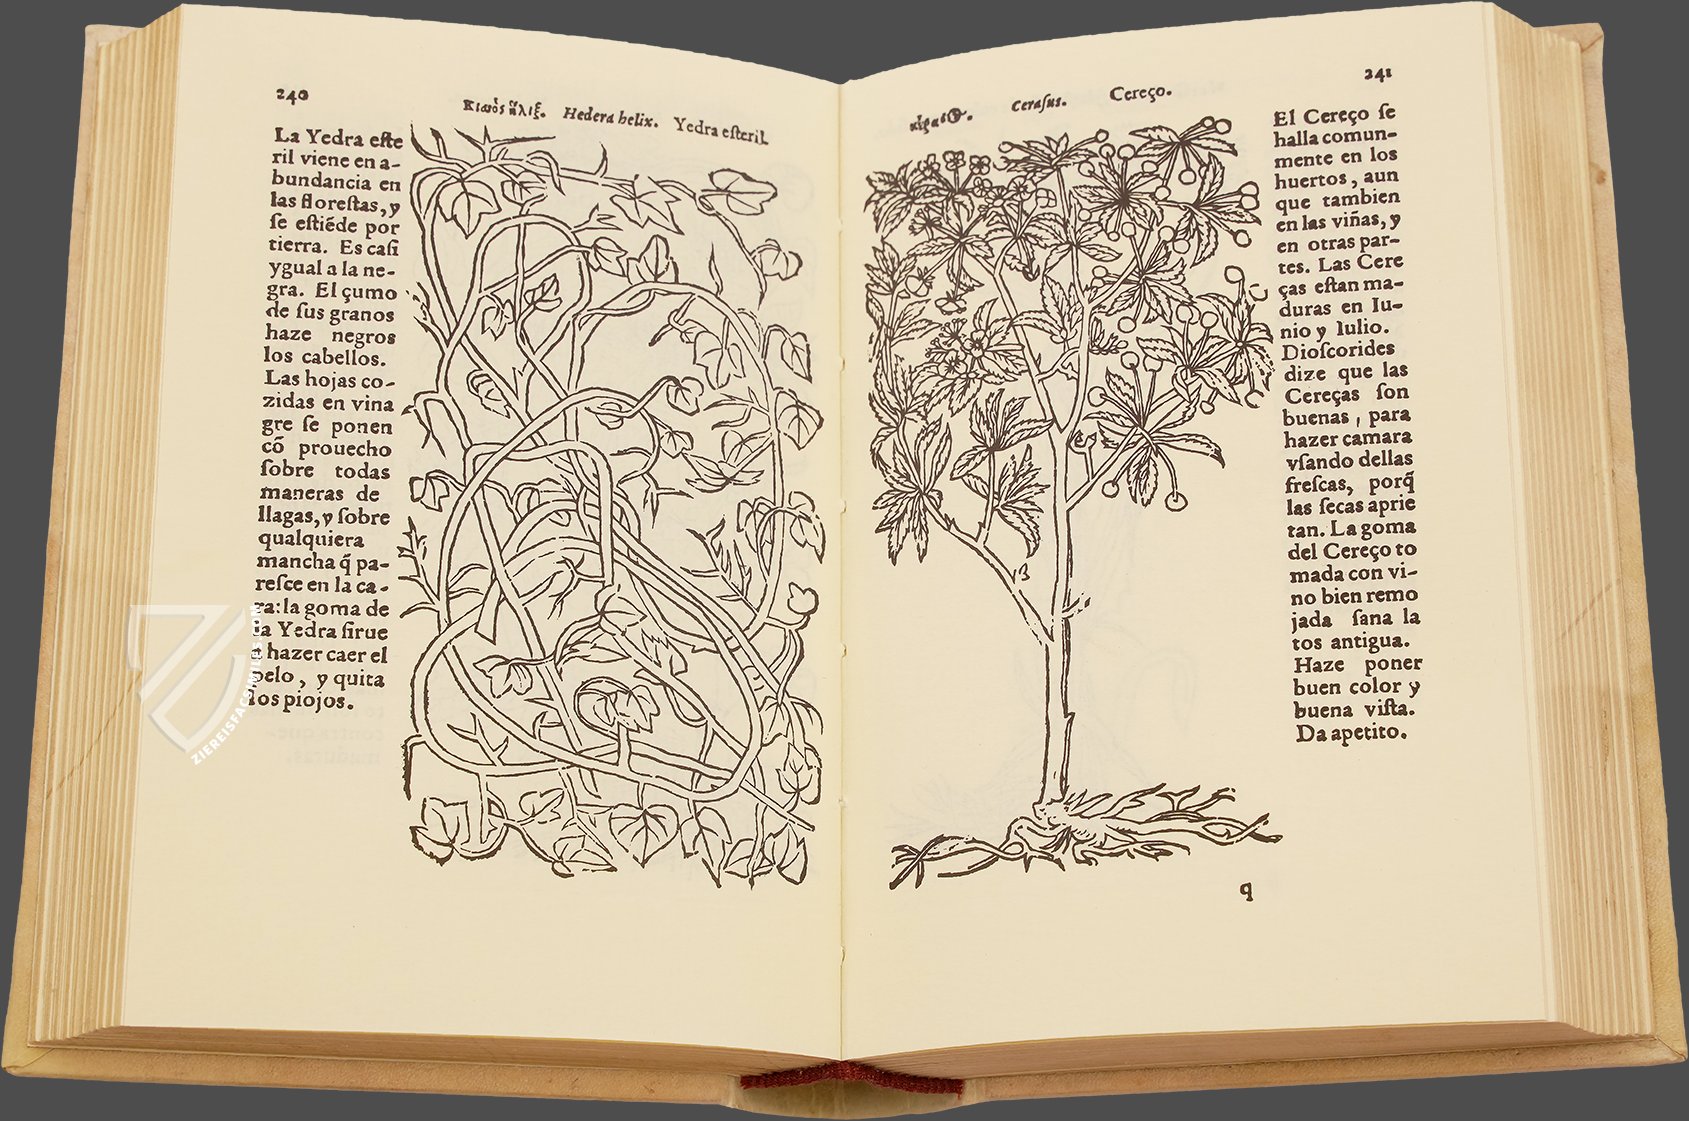 240
Κισσὸς ἕλιξ. Hedera helix. Yedra eſteril.
La Yedra eſte
ril viene en a-
bundancia en
las floreſtas, y
ſe eſtiēde por
tierra. Es caſi
ygual a la ne-
gra. El çumo
de ſus granos
haze negros
los cabellos.
Las hojas co-
zidas en vina
gre ſe ponen
cō prouecho
ſobre todas
maneras de
llagas, y ſobre
qualquiera
mancha q̃ pa-
reſce en la ca-
ra: la goma de
la Yedra ſirue
a hazer caer el
pelo, y quita
los piojos.
241
Ceraſus. Cereço.
El Cereço ſe
halla comun-
mente en los
huertos, aun
que tambien
en las viñas, y
en otras par-
tes. Las Cere
ças eſtan ma-
duras en Iu-
nio y Iulio.
Dioſcorides
dize que las
Cereças ſon
buenas, para
hazer camara
vſando dellas
freſcas, porq̃
las ſecas aprie
tan. La goma
del Cereço to
mada con vi-
no bien remo
jada ſana la
tos antigua.
Haze poner
buen color y
buena viſta.
Da apetito.
q
ZIEREISFACSIMILES.COM